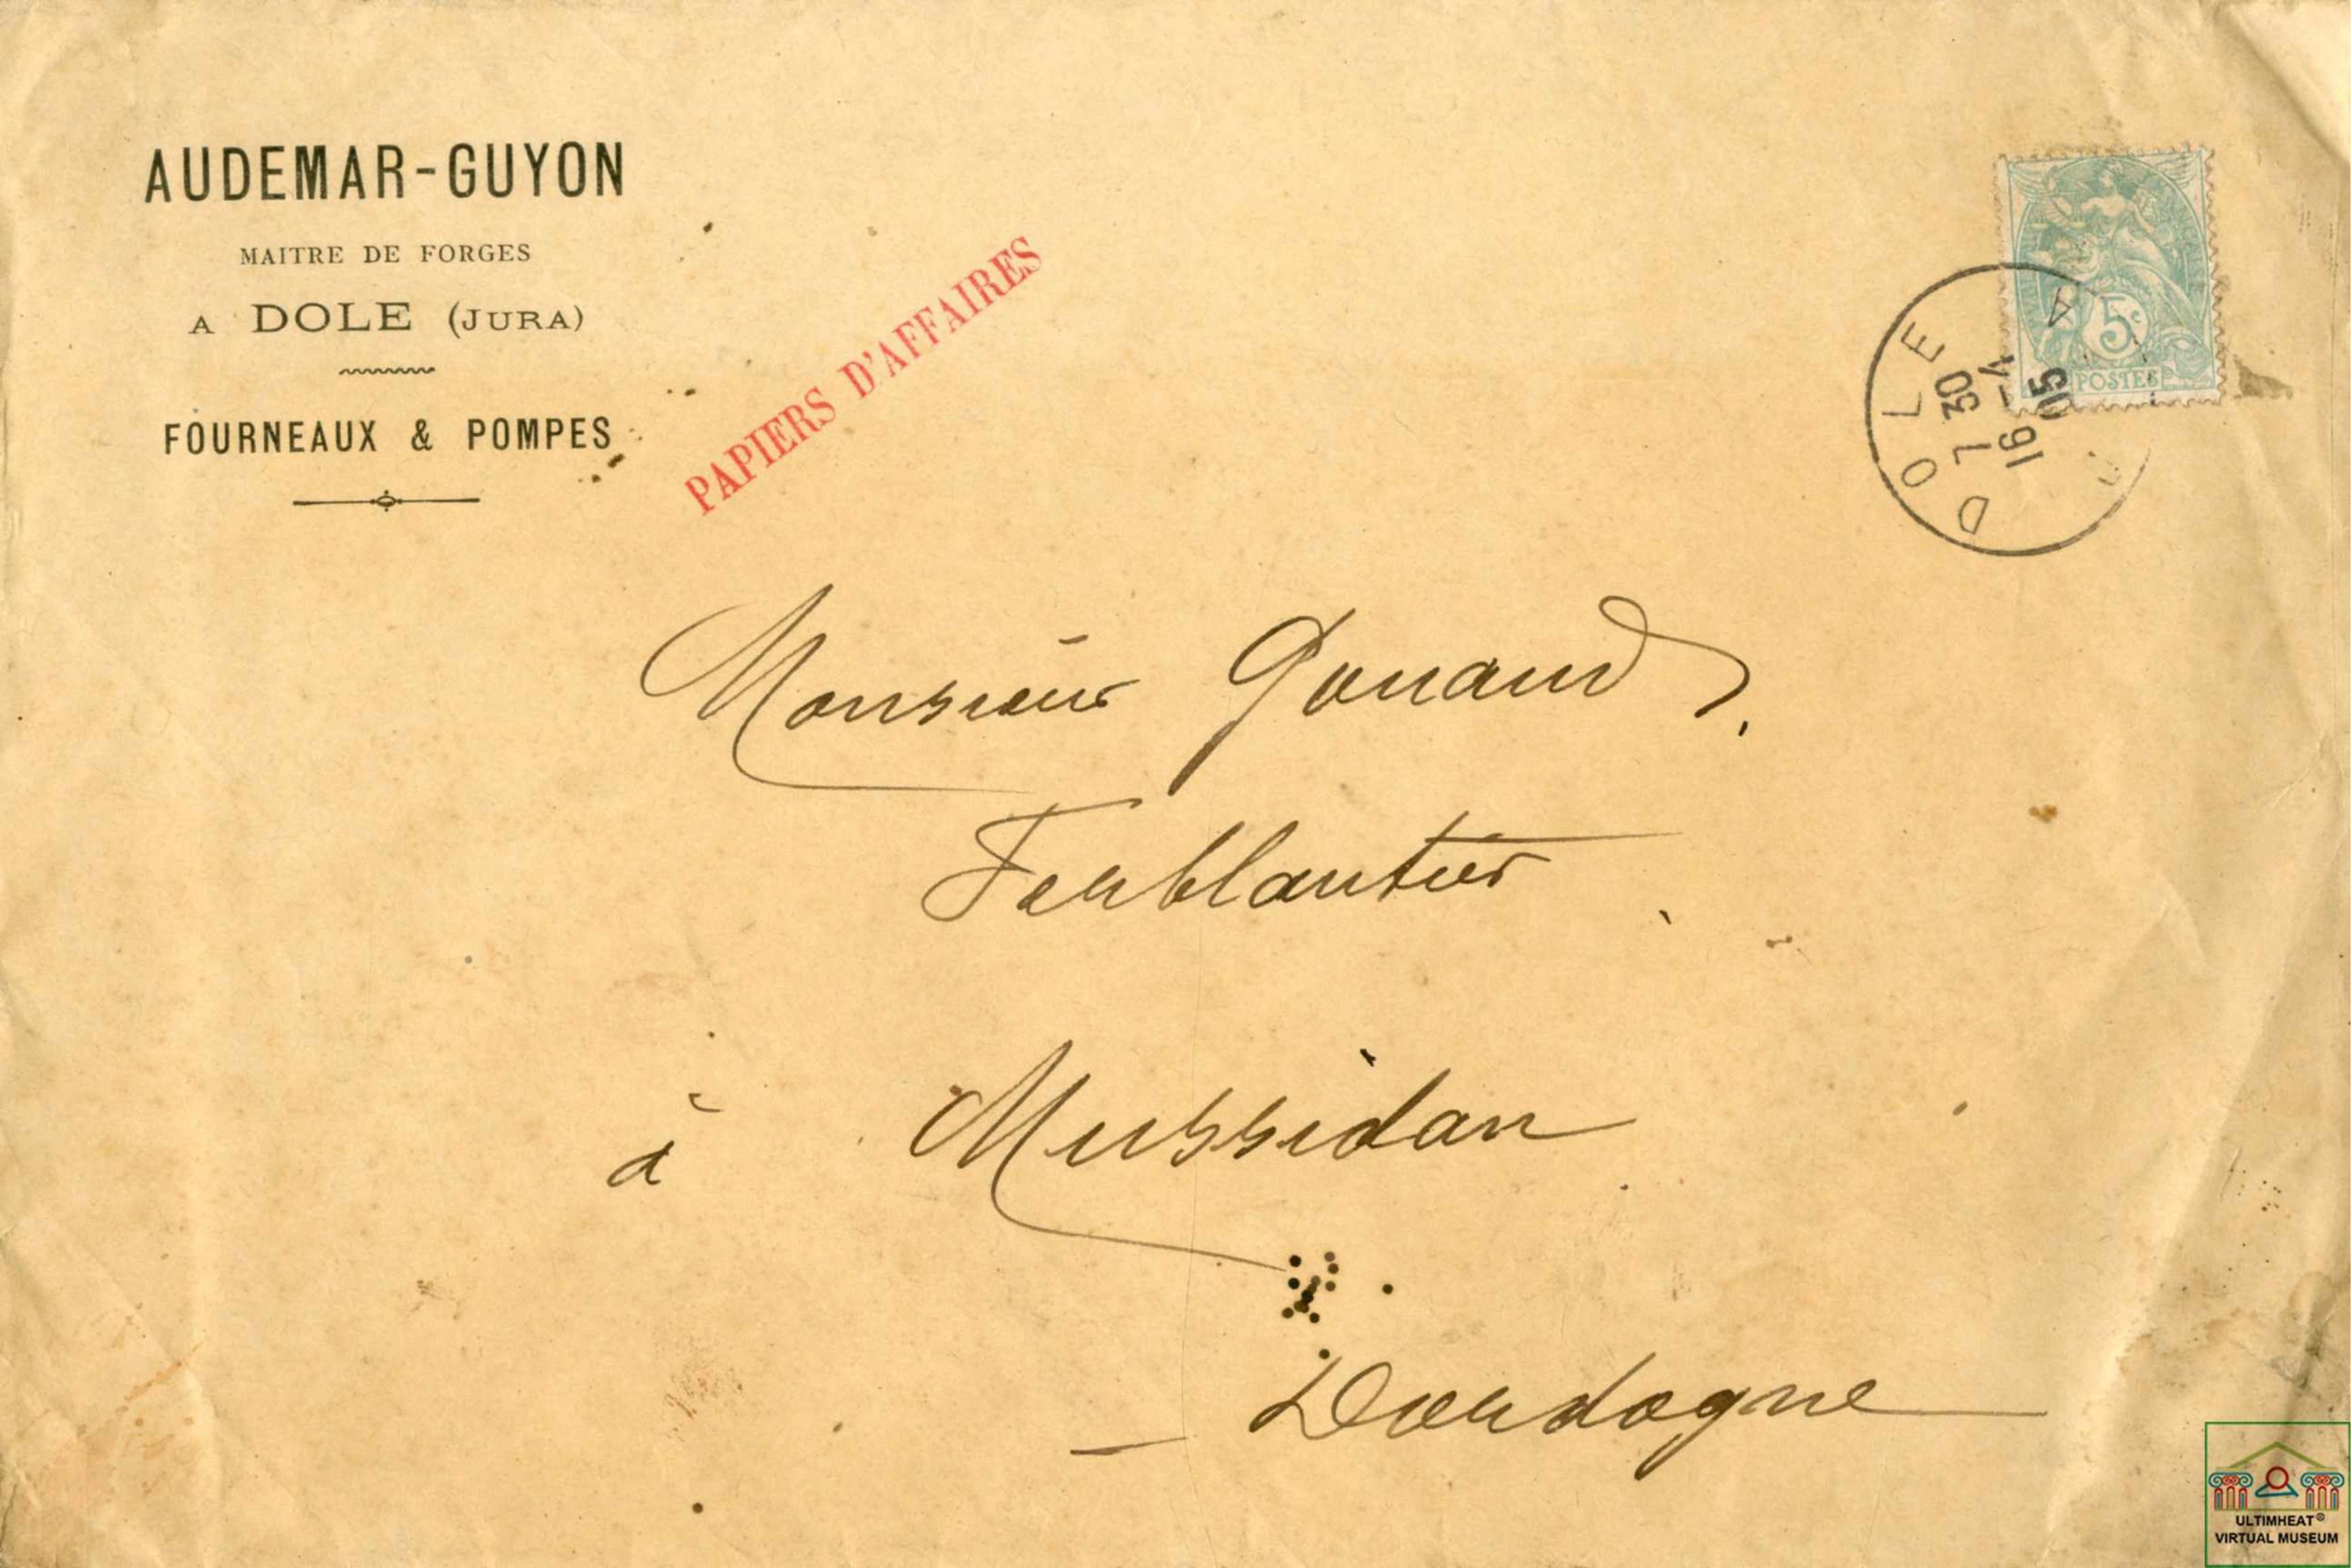 AUDEMAR-GUYON
MAITRE DE FORGES
A DOLE (JURA)
FOURNEAUX & POMPES
PAPIERS D'AFFAIRES
5c
POSTES
DOLE
7 30
16 -4
05
Monsieur
Ferblantier
à Mussidan
Dordogne
ULTIMHEAT®
VIRTUAL MUSEUM